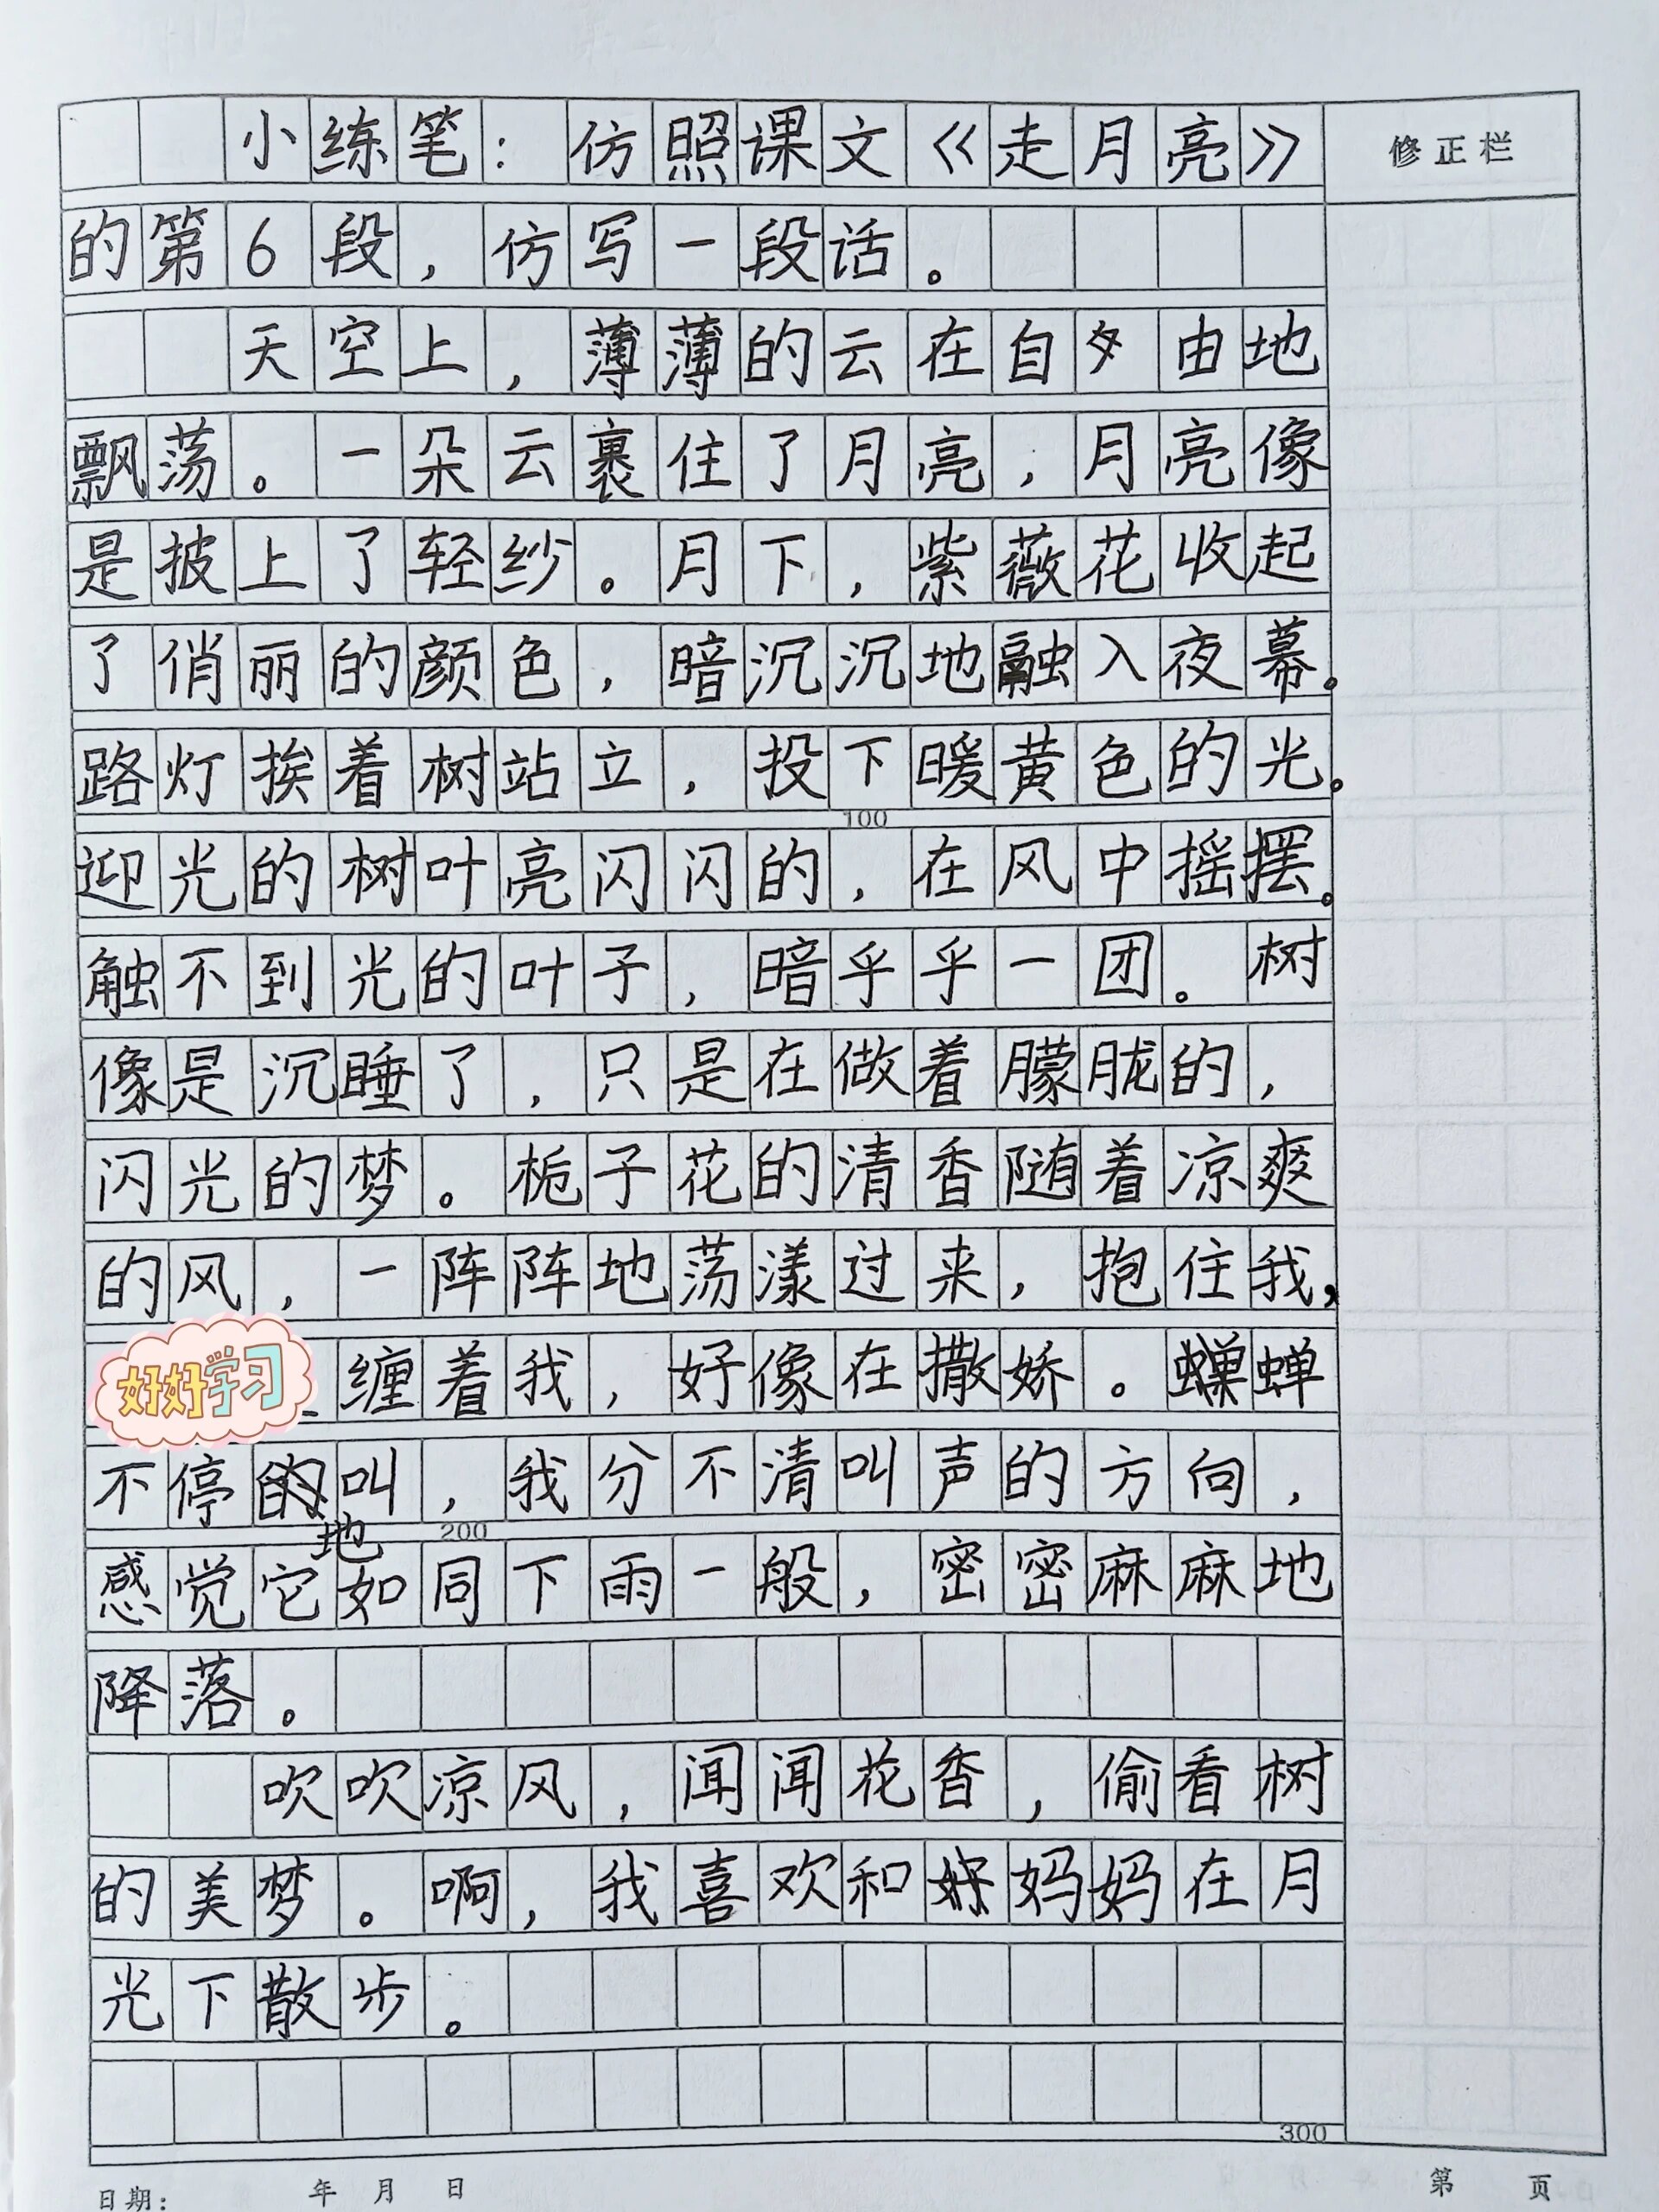 小练笔：仿照课文《走月亮》
修正栏
的第6段，仿写一段话。
天空上，薄薄的云在自由地
飘荡。一朵云裹住了月亮，月亮像
是披上了轻纱。月下，紫薇花收起
了俏丽的颜色，暗沉沉地融入夜幕。
路灯挨着树站立，投下暖黄色的光。
100
迎光的树叶亮闪闪的，在风中摇摆。
触不到光的叶子，暗乎乎一团。树
像是沉睡了，只是在做着朦胧的，
闪光的梦。栀子花的清香随着凉爽
的风，一阵阵地荡漾过来，抱住我，
好好学习
缠着我，好像在撒娇。蝉
不停地叫，我分不清叫声的方向，
200
感觉它如同下雨一般，密密麻麻地
降落。
吹吹凉风，闻闻花香，偷看树
的美梦。啊，我喜欢和妈妈在月
光下散步。
300
日期： 年 月 日
第 页